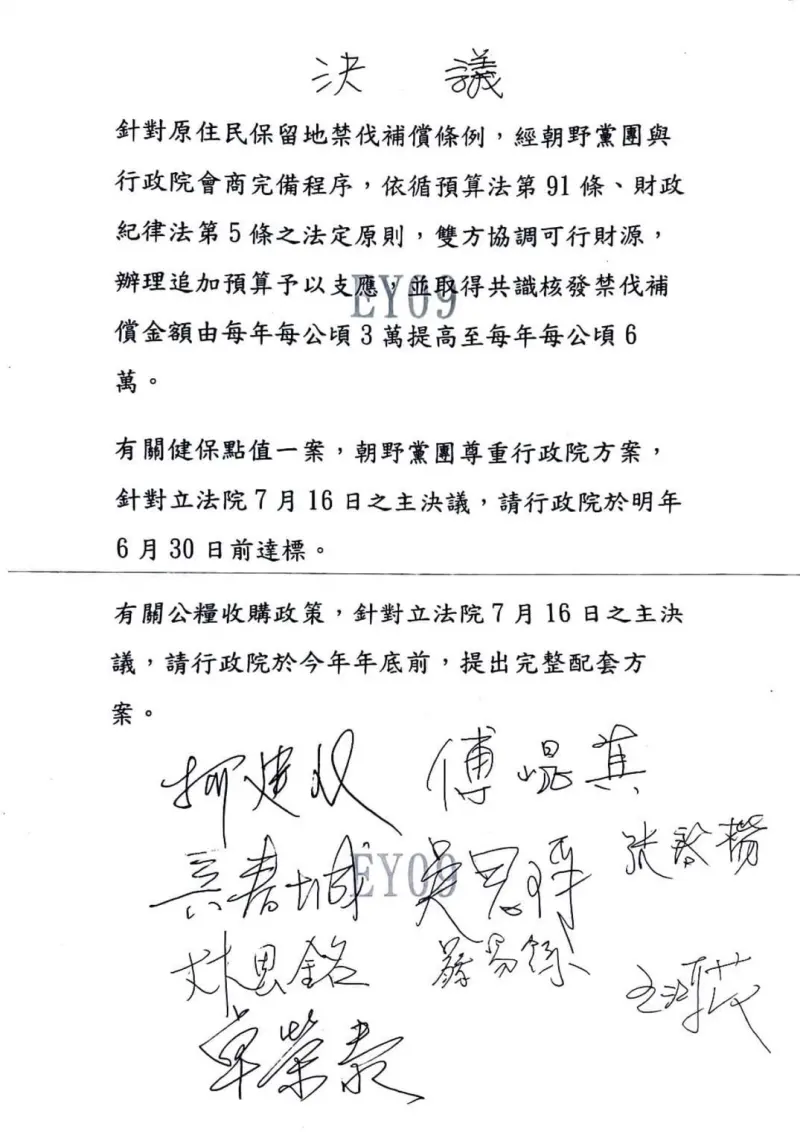 決 議
針對原住民保留地禁伐補償條例，經朝野黨團與
行政院會商完備程序，依循預算法第 91 條、財政
紀律法第 5 條之法定原則，雙方協調可行財源，
辦理追加預算予以支應，並取得共識核發禁伐補
EY09
償金額由每年每公頃 3 萬提高至每年每公頃 6
萬。
有關健保點值一案，朝野黨團尊重行政院方案，
針對立法院 7 月 16 日之主決議，請行政院於明年
6 月 30 日前達標。
有關公糧收購政策，針對立法院 7 月 16 日之主決
議，請行政院於今年年底前，提出完整配套方
案。
傅崐萁
張啓楷
EY09
林思銘
卓榮泰